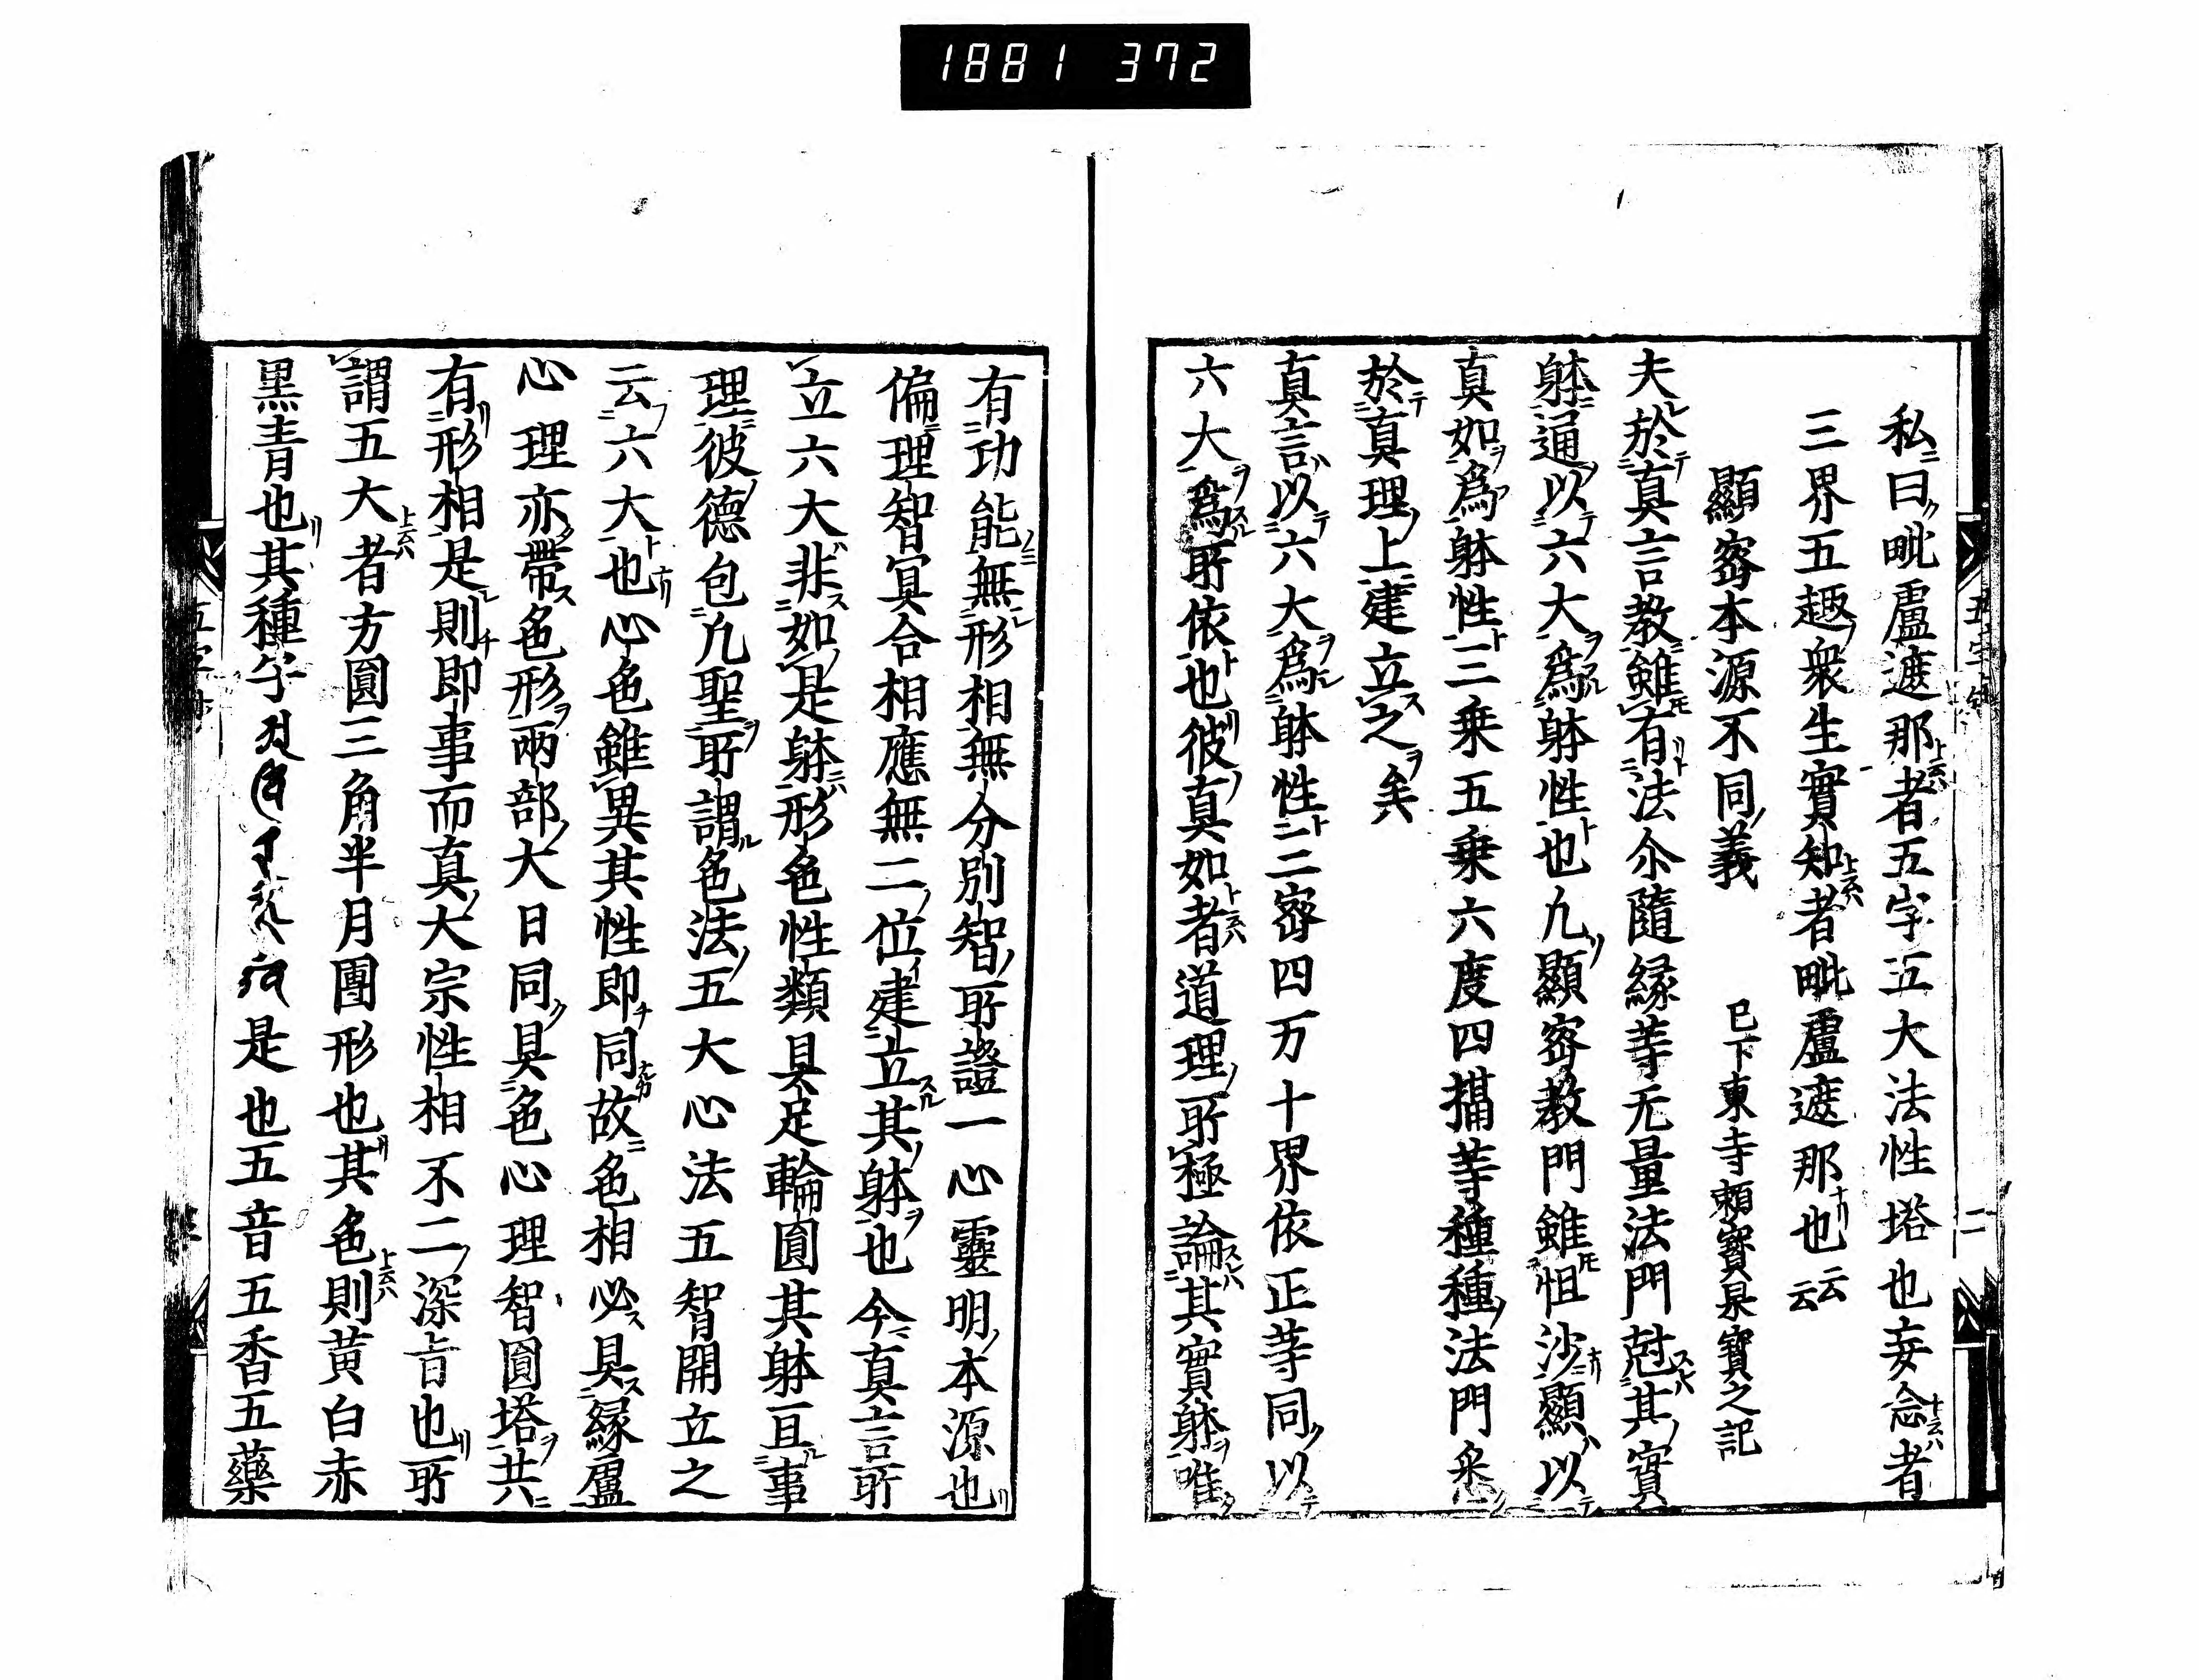 1881 372
私曰毗盧遮那者五字五大法性塔也妄念者
三界五趣衆生實知者毗盧遮那也云云
顯密本源不同義 已下東寺頼寳杲寳之記
夫於真言教雖有法尒隨縁等无量法門尅其實
躰通以六大為躰性也凡顯密教門雖恒沙顯以
真如為躰性三乗五乗六度四攝等種種法門悉
於真理上建立之矣
真言以六大為躰性三密四万十界依正等同以
六大為所依也彼真如者道理所極論其實躰唯
有功能無形相無分別智所證一心靈明本源也
偏理智冥合相應無二位建立其躰也今真言所
立六大非如是躰形色性類具足輪圓其躰亘事
理彼德包凡聖所謂色法五大心法五智開立之
云六大也心色雖異其性即同故色相必具縁盧
心理亦帶色形兩部大日同具色心理智圓塔共
有形相是則即事而真大宗性相不二深旨也所
謂五大者方圓三角半月團形也其色則黄白赤
黒青也其種字是也五音五香五藥